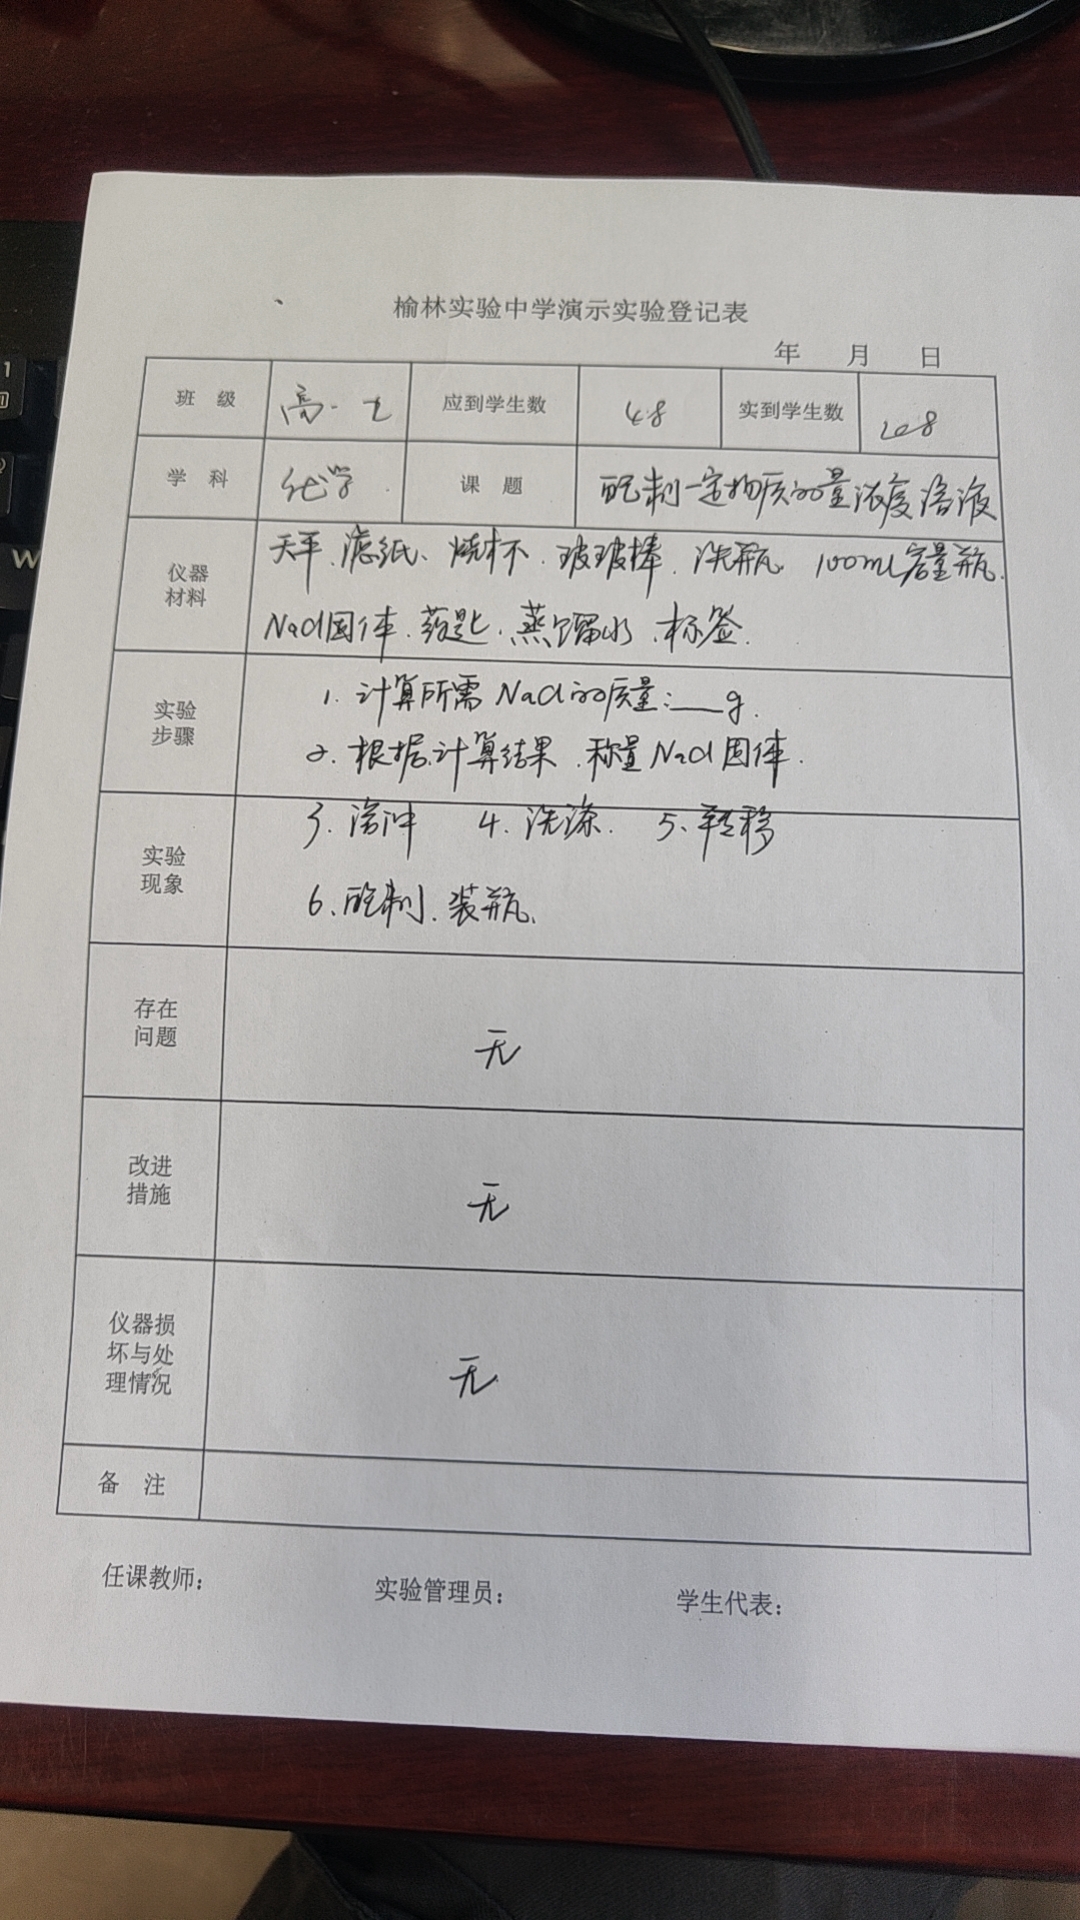 榆林实验中学演示实验登记表
年 月 日
班 级 高一七 应到学生数 48 实到学生数 48
学 科 化学 课 题 配制一定物质的量浓度溶液
仪器材料 天平、滤纸、烧杯、玻玻棒、洗瓶、100mL容量瓶、
NaCl固体、药匙、蒸馏水、标签.
实验步骤 1. 计算所需NaCl的质量:___g.
2. 根据计算结果、称量NaCl固体.
实验现象 3. 溶 4. 洗涤. 5. 转移
6. 配制、装瓶、
存在问题 无
改进措施 无
仪器损坏与处理情况 无
备 注
任课教师: 实验管理员: 学生代表: